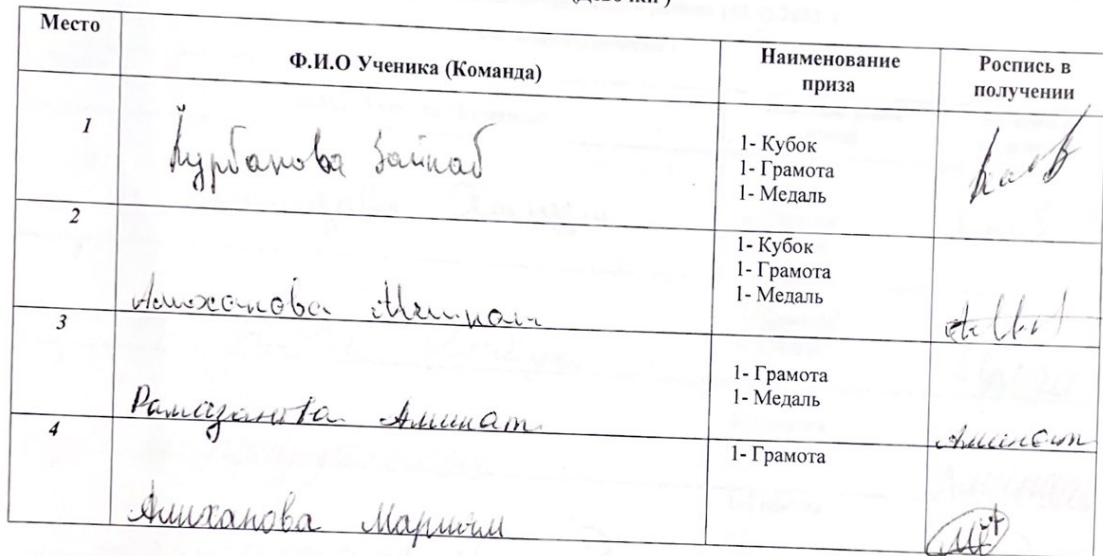 Место Ф.И.О Ученика (Команда) Наименование приза Роспись в получении
1 Курбанова Зайнаб
1- Кубок
1- Грамота
1- Медаль
2 Алиханова
1- Кубок
1- Грамота
1- Медаль
3 Рамазанова Аминат
1- Грамота
1- Медаль
Аминат
4 Алиханова Марьям
1- Грамота